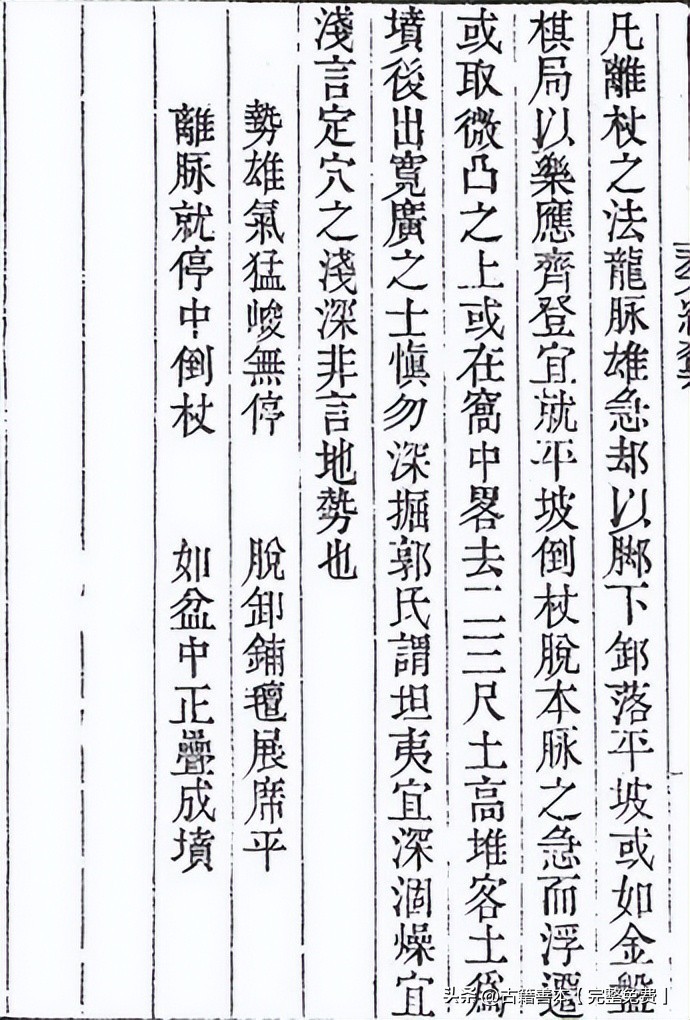 凡離杖之法龍脉雄急却以脚下卸落平坡或如金盤
棋局以樂應齊登宜就平坡倒杖脫本脉之急而浮遷
或取微凸之上或在窩中畧去二三尺土高堆客土爲
墳後出寬廣之士慎勿深掘郭氏謂坦夷宜深涸燥宜
淺言定穴之淺深非言地勢也
勢雄氣猛峻無停 脫卸鋪氊展席平
離脉就停中倒杖 如盆中正疊成墳
头条@古籍善本【完整免费】